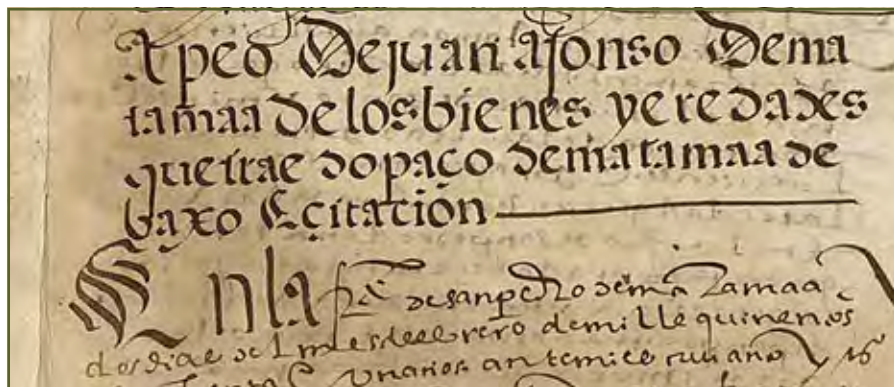 Apeo de juan afonso de ma
tamaa de los bienes y eredades
que trae do paço de matamaa de
baxo E çitaçion
En la fra de san pedro de matamaa
a dos dias del mes de ebrero de mill e quinientos